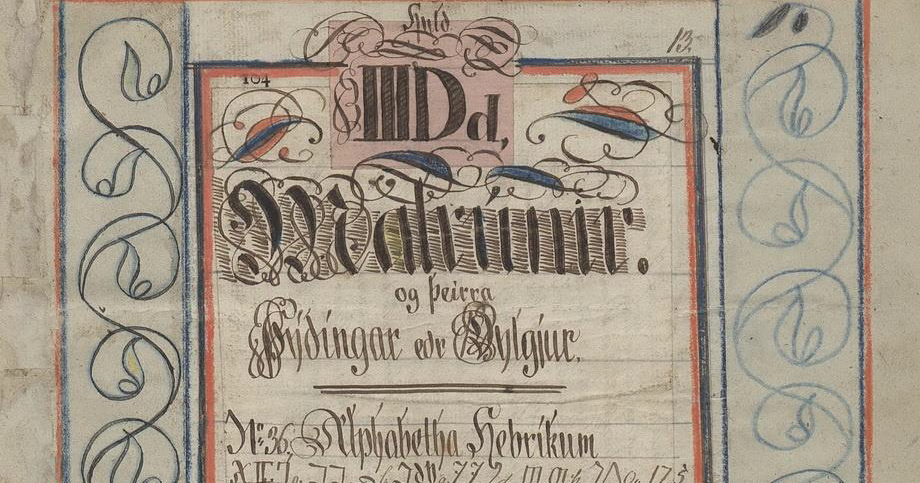 Huld
13.
IIIDd,
Malrunir.
og þeirra
Þýðingar eðr Dylgjur.
Nr. 36. Alphabetha Hebrikum